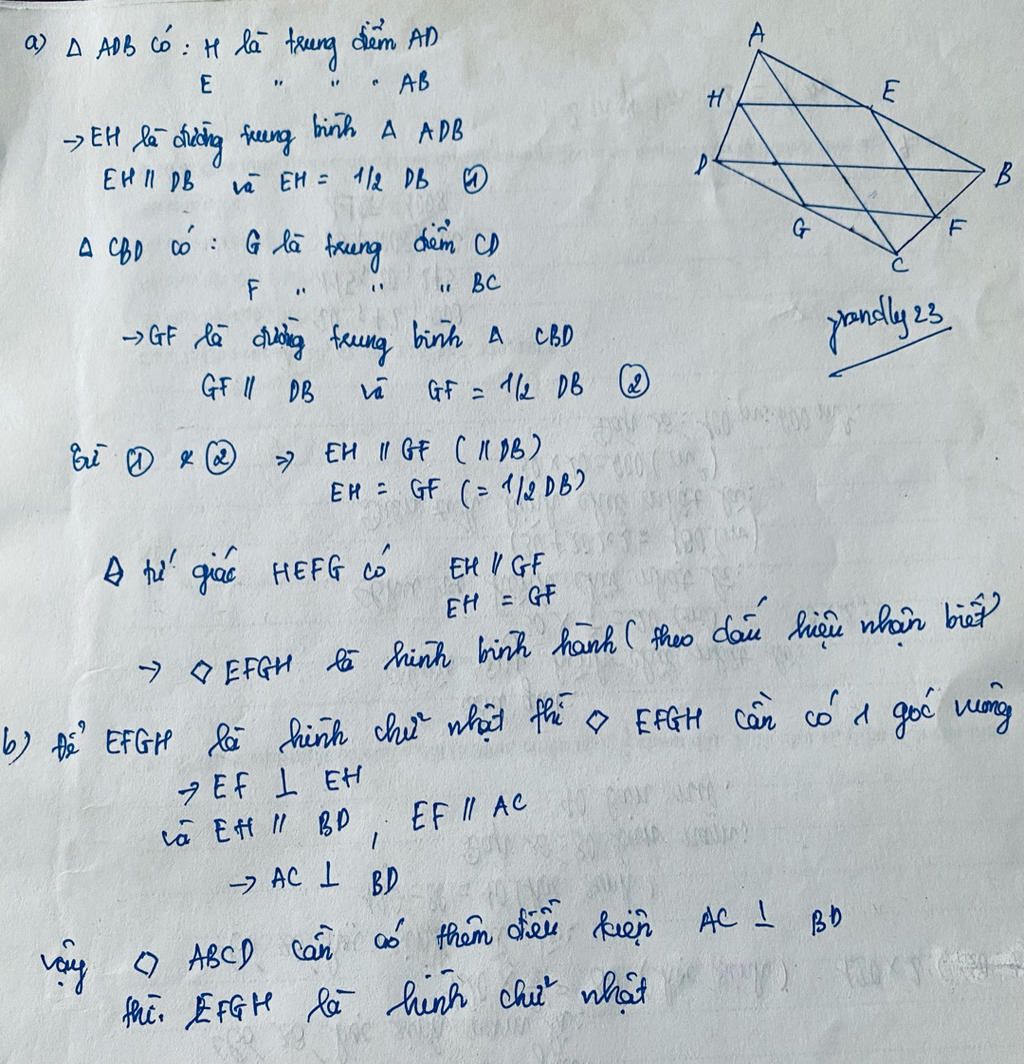 a) Δ ADB có : H là trung điểm AD
E " " " AB
→ EH là đường trung bình Δ ADB
EH // DB và EH = 1/2 DB ①
Δ CBD có : G là trung điểm CD
F " " " BC
→ GF là đường trung bình Δ CBD
GF // DB và GF = 1/2 DB ②
Từ ① & ② ⇒ EH // GF ( // DB)
EH = GF (= 1/2 DB)
◊ tứ giác HEFG có EH // GF
EH = GF
→ ◊ EFGH là hình bình hành ( theo dấu hiệu nhận biết)
b) Để EFGH là hình chữ nhật thì ◊ EFGH cần có 1 góc vuông
→ EF ⊥ EH
và EH // BD , EF // AC
→ AC ⊥ BD
vậy ◊ ABCD cần có thêm điều kiện AC ⊥ BD
thì. EFGH là hình chữ nhật
A
H
E
D
B
G
F
C
grandly23